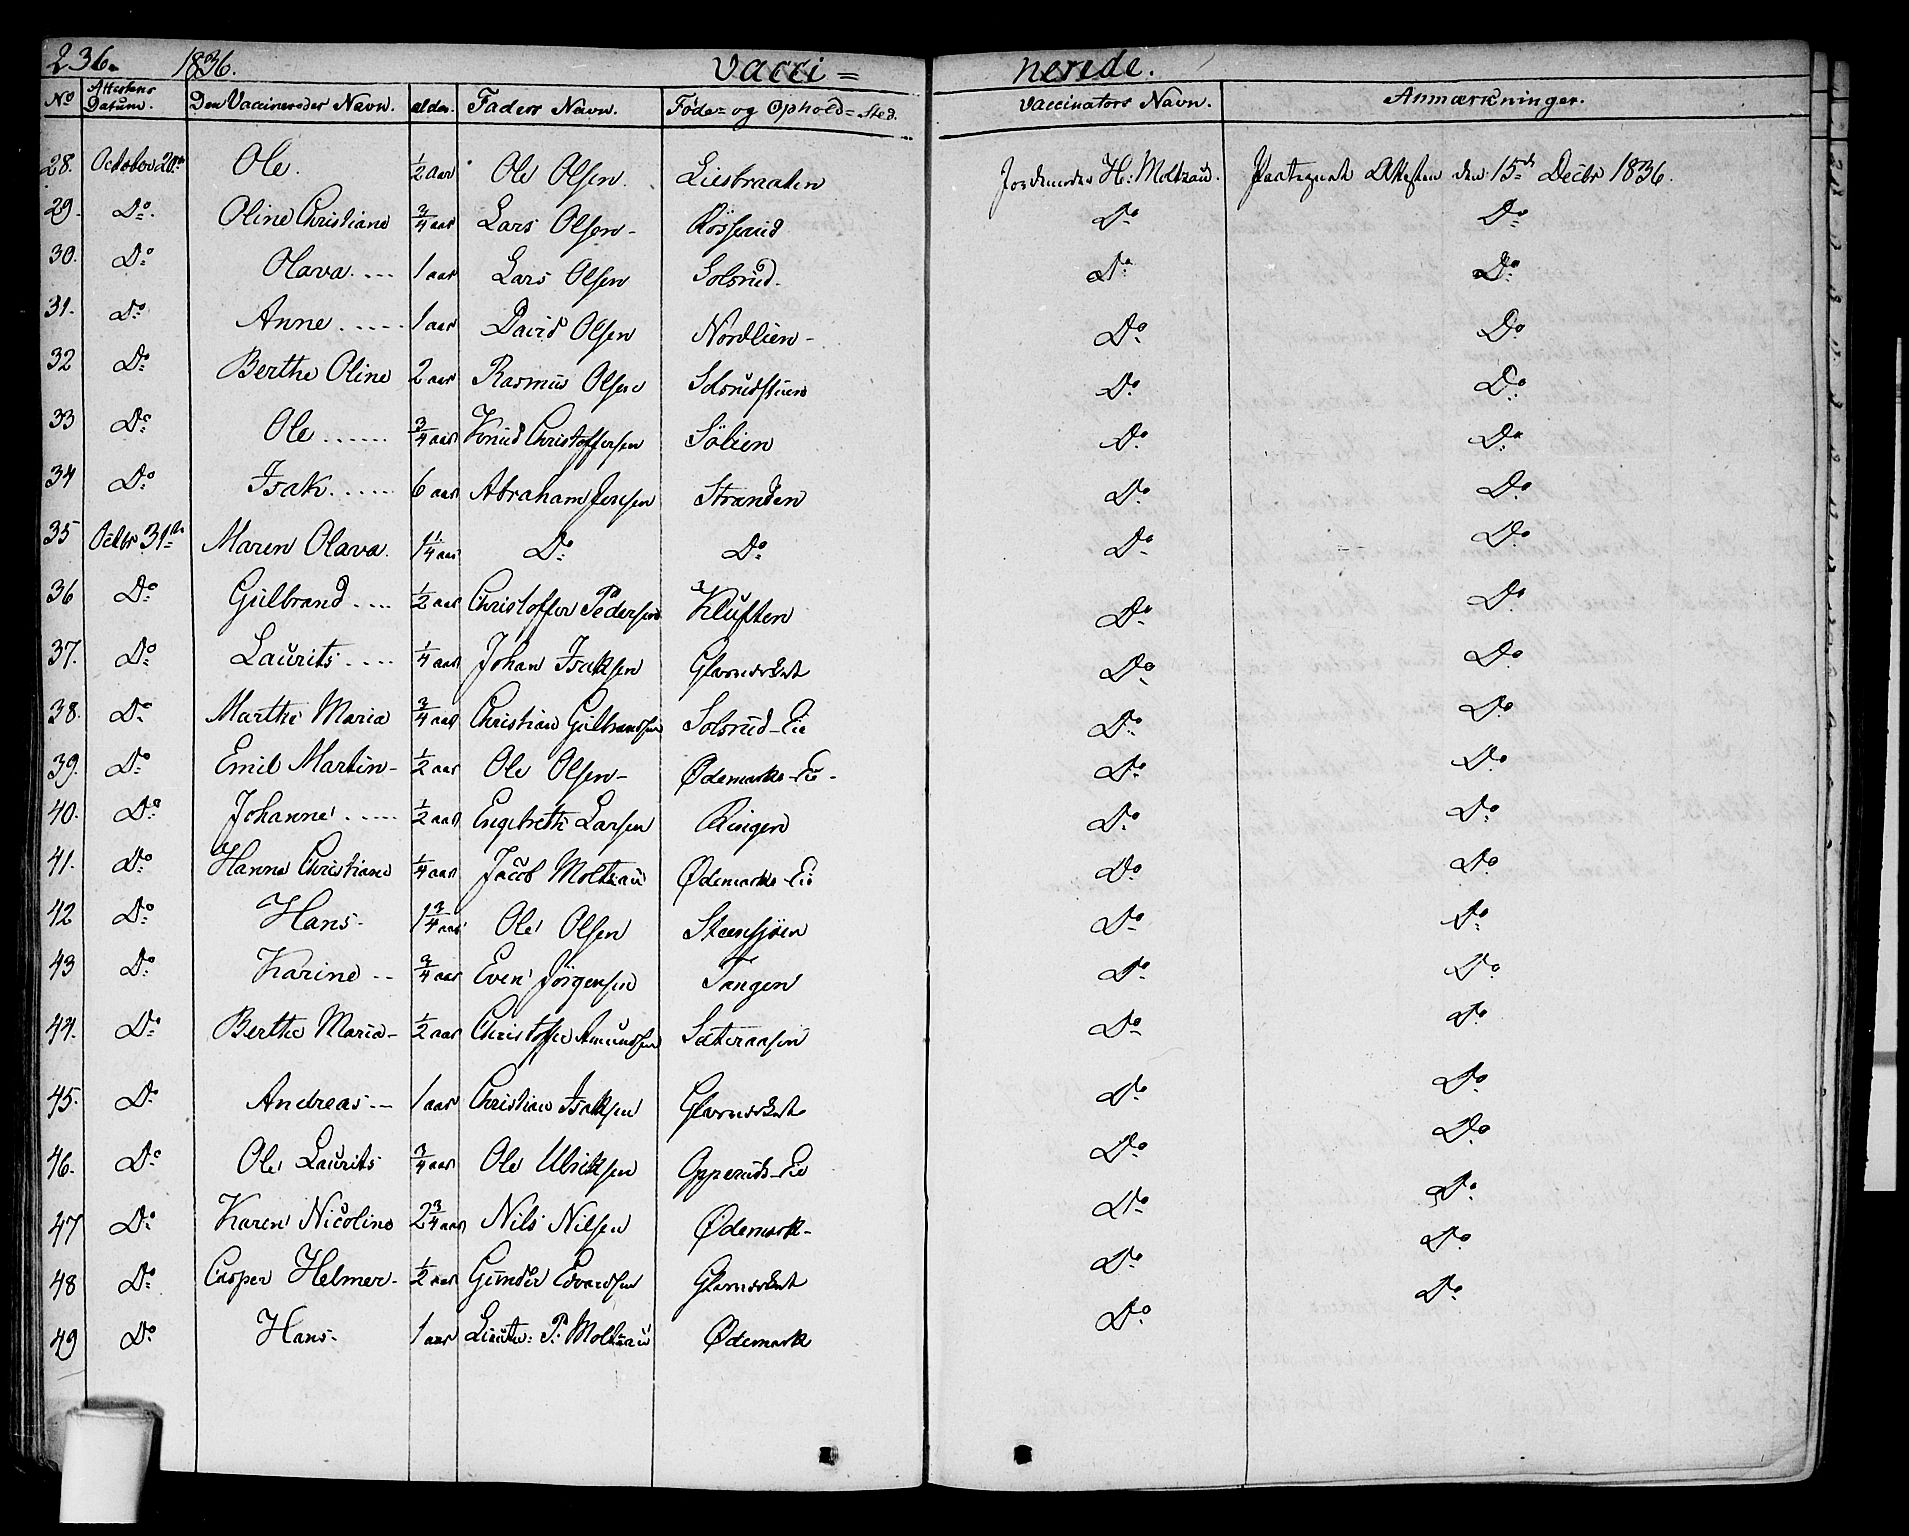 236. 1836. Vacci= nerede.
No Attestens Datum. Den Vaccineredes Navn. alder. Faders Navn. Føde= og Ophold=Sted. Vaccinators Navn. Anmærkninger.
28. October 20de Ole. 1/2 aar Ole Olsen. Liesbraaten Jordmoder H: Moltzau. Paategnet Attesten den 15de Decbr 1836.
29. Do. Oline Christiane 3/4 aar Lars Olsen - Rösserud Do Do
30. Do Olava.... 1 aar Lars Olsen Solsrud. Do Do
31. Do Anne..... 1 aar David Olsen Nordlien - Do Do
32 Do Berthe Oline 2 aar Rasmus Olsen Solsrudstuen Do Do
33 Do Ole...... 3/4 aar Knud Christoffersen Sölien Do Do
34 Do Isak...... 6 aar Abraham Jensen Stranden Do Do
35 Octbr 31te Maren Olava. 1 1/4 aar Do Do Do Do
36 Do Gulbrand.... 1/2 aar Christoffer Pedersen Kluften Do Do
37. Do Laurits.... 1/4 aar Johan Isaksen Glarmester Do Do
38. Do Marthe Maria 3/4 aar Christian Gulbrandsen Solsrud-Eie Do Do
39. Do Emil Martin - 1/2 aar Ole Olsen - Ødemarks-Eie - Do Do
40. Do Johanne..... 1/2 aar Engebreth Larsen Ringen Do Do
41. Do Hanna Christiane 1/4 aar Jacob Moltzau Ødemarks Eie Do Do
42 Do Hans - 1 3/4 aar Ole Olsen Steensjöen Do Do
43 Do Karine -- 3/4 aar Even Jörgensen Tangen Do Do
44. Do Berthe Maria - 1/2 aar Christoffer Amundsen Sæteraasen Do Do
45. Do Andreas -- 1 aar Christian Isaksen Do Do
46. Do Ole Laurits 3/4 aar Ole Ulriksen Opperuds-Eie Do Do
47 Do Karen Nicoline 2 3/4 aar Nils Nilsen Ødemark - Do Do
48 Do Casper Helmer - 1/2 aar Gunder Edvardsen Do Do
49 Do Hans - 1 aar Lieute: P. Moltzau Ødemark Do